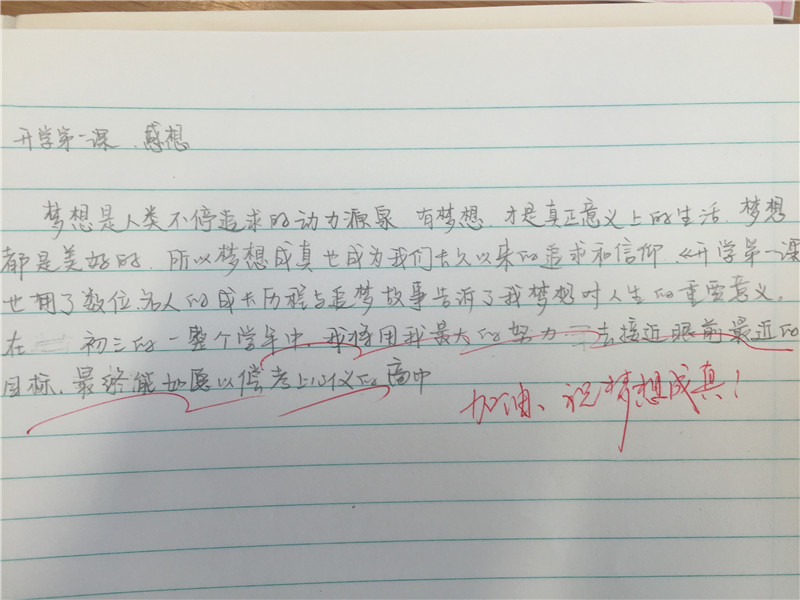 开学第一课、感想
梦想是人类不停追求的动力源泉 有梦想,才是真正意义上的生活,梦想
都是美好的,所以梦想成真也成为我们长久以来的追求和信仰,《开学第一课
也用了数位名人的成长历程与追梦故事告诉了我梦想对人生的重要意义。
在 初三的一整个学年中,我将用我最大的努力 去接近眼前最近的
目标,最终能如愿以偿考上心仪的高中
加油、祝梦想成真!